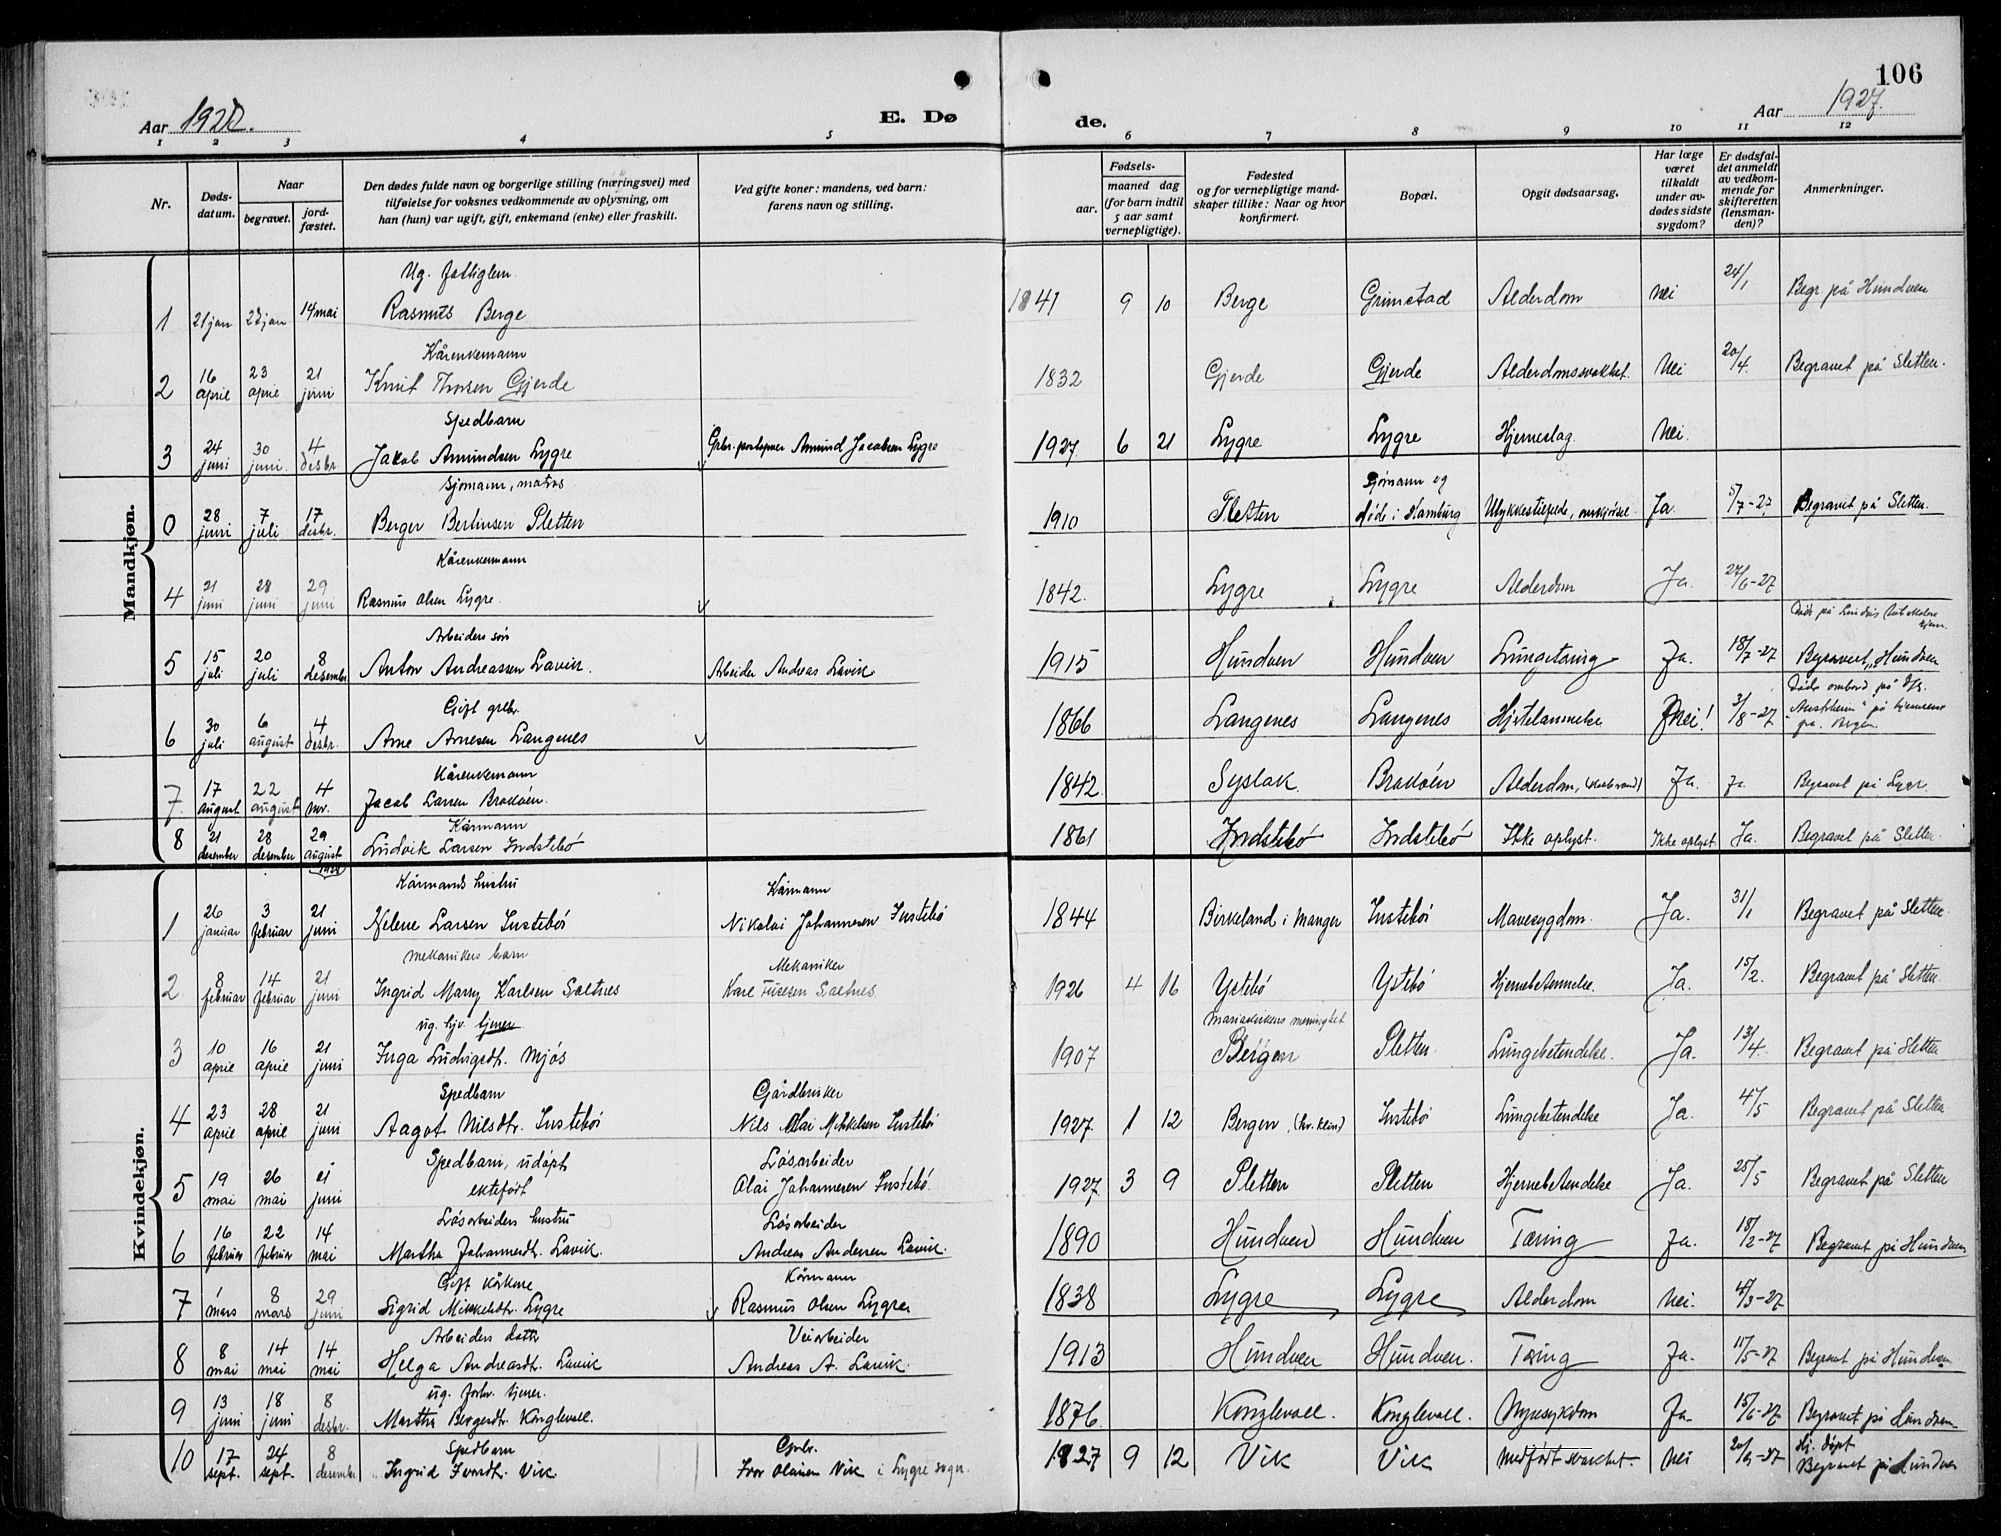 106
Aar 1927. E. Dø de. Aar 1927.
1 2 3 4 5 6 7 8 9 10 11 12
Nr. Døds-datum. Naar begravet. jord-fæstet. Den dødes fulde navn og borgerlige stilling (næringsvei) med tilføielse for voksnes vedkommende av oplysning, om han (hun) var ugift, gift, enkemand (enke) eller fraskilt. Ved gifte koner: mandens, ved barn: farens navn og stilling. Fødsels- aar. maaned dag (for barn indtil 5 aar samt vernepligtige). Fødested og for vernepligtige mand-skaper tillike: Naar og hvor konfirmert. Bopæl. Opgit dødsaarsag. Har læge været tilkaldt under av-dødes sidste sygdom? Er dødsfal-det anmeldt av vedkom-mende for skifteretten (lensman-den)? Anmerkninger.
Mandkjøn.
Ug.
1 21 jan 27 jan 14 mai Rasmus Berge 1841 9 10 Berge Grimstad Alderdom Nei 24/1 Begr. på Hundven
Kårenkemann
2 16 april 23 april 21 juni Knut Thosen Gjerde 1832 Gjerde Gjerde Alderdomssvakhet. Nei 20/4. Begravet på Sletten.
Spedbarn
3 24 juni 30 juni. 4 desbr. Jakob Amundsen Lygre Amund Jacobsen Lygre 1927. 6 21 Lygre Lygre Hjerneslag Nei.
Sjømann, matros Sjømann og
0 28 juni 7 juli 17 desbr. Berger Bertinsen Sletten 1910 Sletten døde i Hamburg Ulykkestilfelde, overkjørsel Ja. 5/7-27 Begravet på Sletten.
Kårenkemann
4 21 juni 28 juni 29 juni Rasmus Olsen Lygre. 1842. Lygre Lygre Alderdom Ja. 27/6-27
Arbeiders søn
5 15 juli 20 juli 8 desember Anton Andreassen Lavik. Arbeider Andreas Lavik 1915 Hundven Hundven Lungetæring Ja. 18/7-27 Begravet, Hundven
Gift grbr. Døde ombord på d/s.
6 30 juli 6 august 4 desbr. Arne Arnesen Langenes 1866 Langenes Langenes Hjertelammelse Nei! 3/8-27 Austrheim på fra Bergen
Kårenkemann
7. 17 august 22 august 4 nov. Jacob Larsen Brakøen. 1842. Syslak Brakøen Alderdom, Ja. Ja. Begravet på Lygr.
Kårmann
8 21 desember 28 desember 29 august 1928 Ludvik Larsen Indstebø 1861 Indstebø Indstebø Ikke oplyst. Ikke oplyst Ja. Begravet på Sletten.
Kvindekjøn.
Kårmands hustru Kårmann
1 26 januar 3 februar 21 juni Helene Larsen Instebø Nikolai Johannesen Instebø 1844 Birkeland i Manger Instebø Mavesygdom. Ja. 31/1 Begravet på Sletten.
Mekanikers barn Mekaniker
2 8 februar 14 februar 21 juni Ingrid Marry Karlsen Saltnes Karl Saltnes. 1926 4 16 Ystebø Ystebø Ja. 15/2. Begravet på Sletten.
ug. hjv. tjener Mariakirkens menighet
3 10 april 16 april 21 juni Inga Ludvigsdt. Mjøs 1907 Bergen Sletten. Lungebetendelse. Ja. 13/4. Begravet på Sletten
Spedbarn Gårdbruker
4 23 april 28 april 21 juni Aagot Nilsdtr. Instebø Nils Olai Mikkelsen Instebø 1927. 1 12 Bergen, (kv. klin) Instebø Lungebetendelse Ja. 4/5 Begravet på Sletten
Spedbarn, udøpt Løsarbeider
5 19 mai 26 mai juni ektefødt Olai Johannesen Instebø. 1927. 3 9 Sletten Sletten Ja. 25/5 Begravet på Sletten
Løsarbeiders hustru Løsarbeider
6 16 februar 22 februar 14 mai Martha Johannesdt. Lavik. Andreas Andersen Lavik. 1890 Hundven Hundven Tæring Ja. 18/2-27 Begravet på Hundven
Gift kårkone Kårmann
7 1 mars 8 mars 29 juni Sigrid Mikkelsdtr. Lygre Rasmus Olsen Lygre 1838 Lygre Lygre Alderdom Nei. 4/3-27
Arbeiders dattr Veiarbeider
8 8 mai 14 mai 14 mai Helga Andreasdt. Lavik Andreas A. Lavik. 1913 Hundven Hundven. Tæring Ja. 11/5-27 Begravet på Hundven
ug. forhv. tjener.
9 13 juni 18 juni 8 desbr. Martha Bergesdt. Konglevoll. 1876. Konglevoll. Konglevoll. Nyresykdom Ja. 15/6-27 Begravet på Hundven
Spedbarn Grbr. Hj. døpt
10 17 sept. 24 sept. 8 desember Ingrid Ivarsdt. Vik Ivar Olainsen Vik i Lygre sogn 1927 9 12 Vik Vik Medfødt svakhet. Nei 20/9-27 Begravet på Hundven